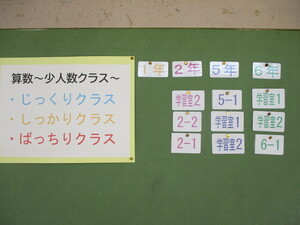 算数～少人数クラス～
・じっくりクラス
・しっかりクラス
・ばっちりクラス
1年 2年 5年 6年
学習室2 5-1 学習室1
2-2 学習室1 学習室2
2-1 学習室2 6-1